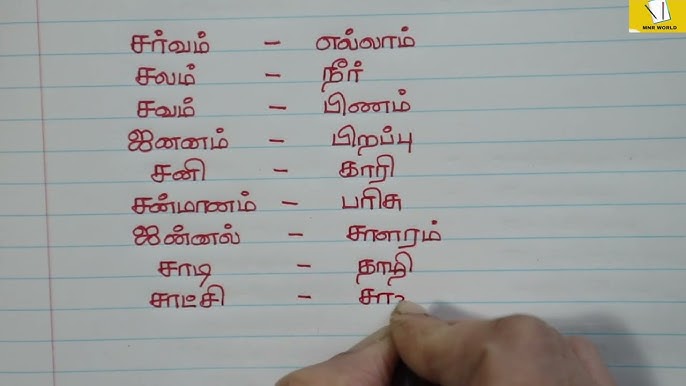 MNR WORLD
சர்வம் - எல்லாம்
சலம் - நீர்
சவம் - பிணம்
ஜனனம் - பிறப்பு
சனி - காரி
சன்மானம் - பரிசு
ஜன்னல் - சாளரம்
சாடி - தாழி
சாட்சி -